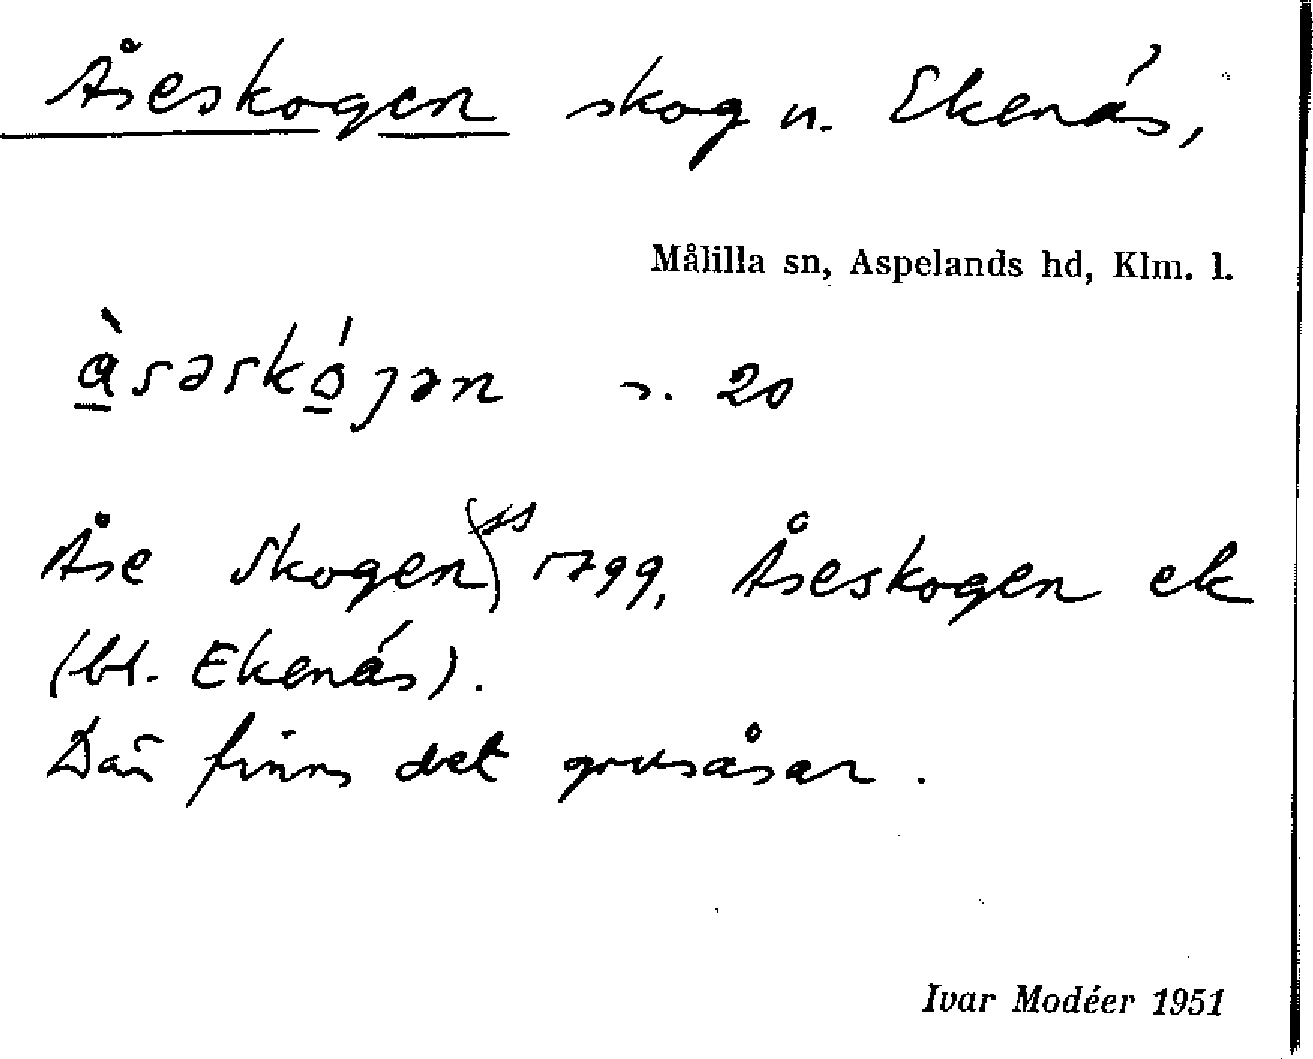 Åseskogen skog u. Ekenäs,
Målilla sn, Aspelands hd, Klm. l.
å̀səskó̠jən s. 20
Åse Skogen ss 1799, Åseskogen ek
(bl. Ekenäs).
Där finns det grusåsar.
Ivar Modéer 1951